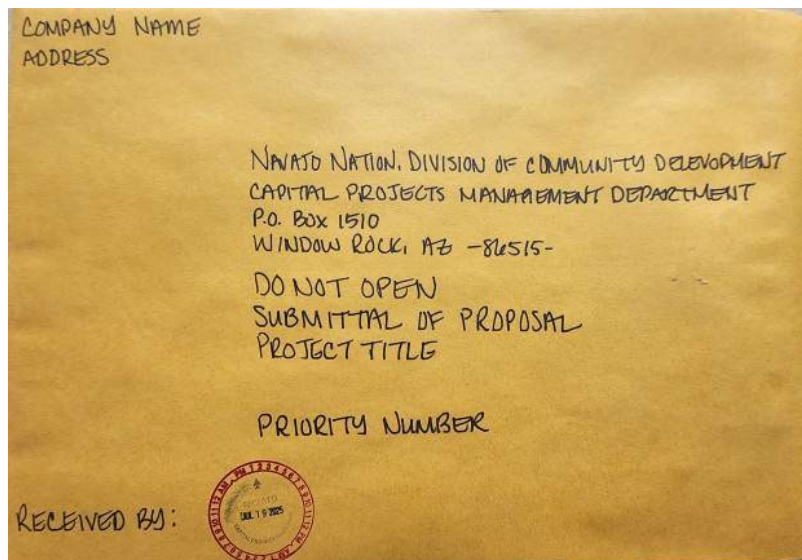 COMPANY NAME
ADDRESS
NAVAJO NATION. DIVISION OF COMMUNITY DELEVOPMENT
CAPITAL PROJECTS MANAGEMENT DEPARTMENT
P.O. BOX 1510
WINDOW ROCK, AZ -86515-
DO NOT OPEN
SUBMITTAL OF PROPOSAL
PROJECT TITLE
PRIORITY NUMBER
RECEIVED BY:
RECEIVED
JUL 19 2025